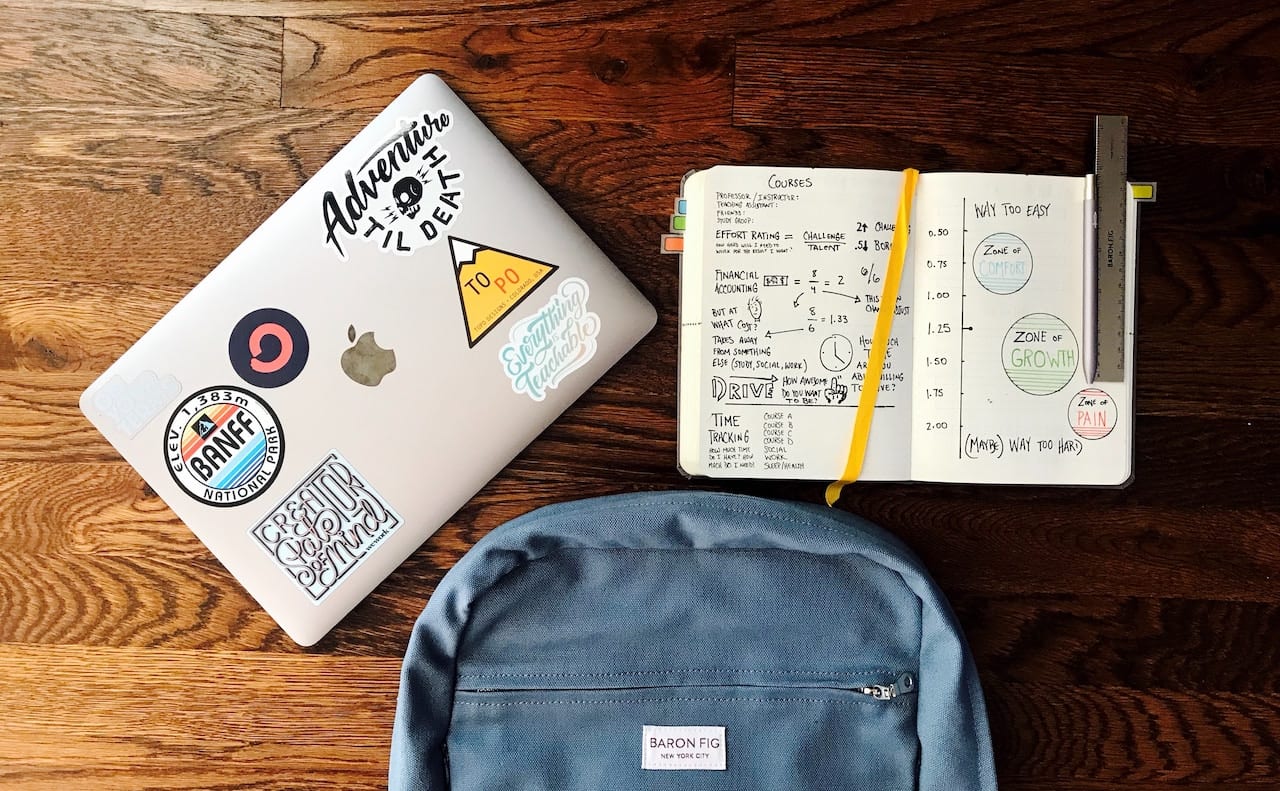 Adventure
'TIL DEATH
TO
PO
TOPO DESIGNS • COLORADO, USA
Everything
is
Teachable
ELEV. 1,383m
BANFF
NATIONAL PARK
CREATOR
State
of Mind
wework
COURSES
PROFESSOR / INSTRUCTOR:
TEACHING ASSISTANT:
FRIENDS:
STUDY GROUP:
EFFORT RATING = CHALLENGE
TALENT
HOW HARD WILL I NEED TO
WORK FOR THE RESULT I WANT?
2↑
.5↓
FINANCIAL
ACCOUNTING
= 8
4
= 2
6/6
BUT AT
WHAT COST?
8
6
= 1.33
TAKES AWAY
FROM SOMETHING
ELSE (STUDY, SOCIAL, WORK)
DRIVE
HOW AWESOME
DO YOU WANT
TO BE?
TIME
TRACKING
HOW MUCH TIME
DO I HAVE? HOW
MUCH DO I NEED?
COURSE A
COURSE B
COURSE C
COURSE D
SOCIAL
WORK
SLEEP/HEALTH
WAY TOO EASY
0.50
0.75
1.00
1.25
1.50
1.75
2.00
ZONE OF
COMFORT
ZONE OF
GROWTH
ZONE OF
PAIN
(MAYBE) WAY TOO HARD
BARON FIG
BARON FIG
NEW YORK CITY